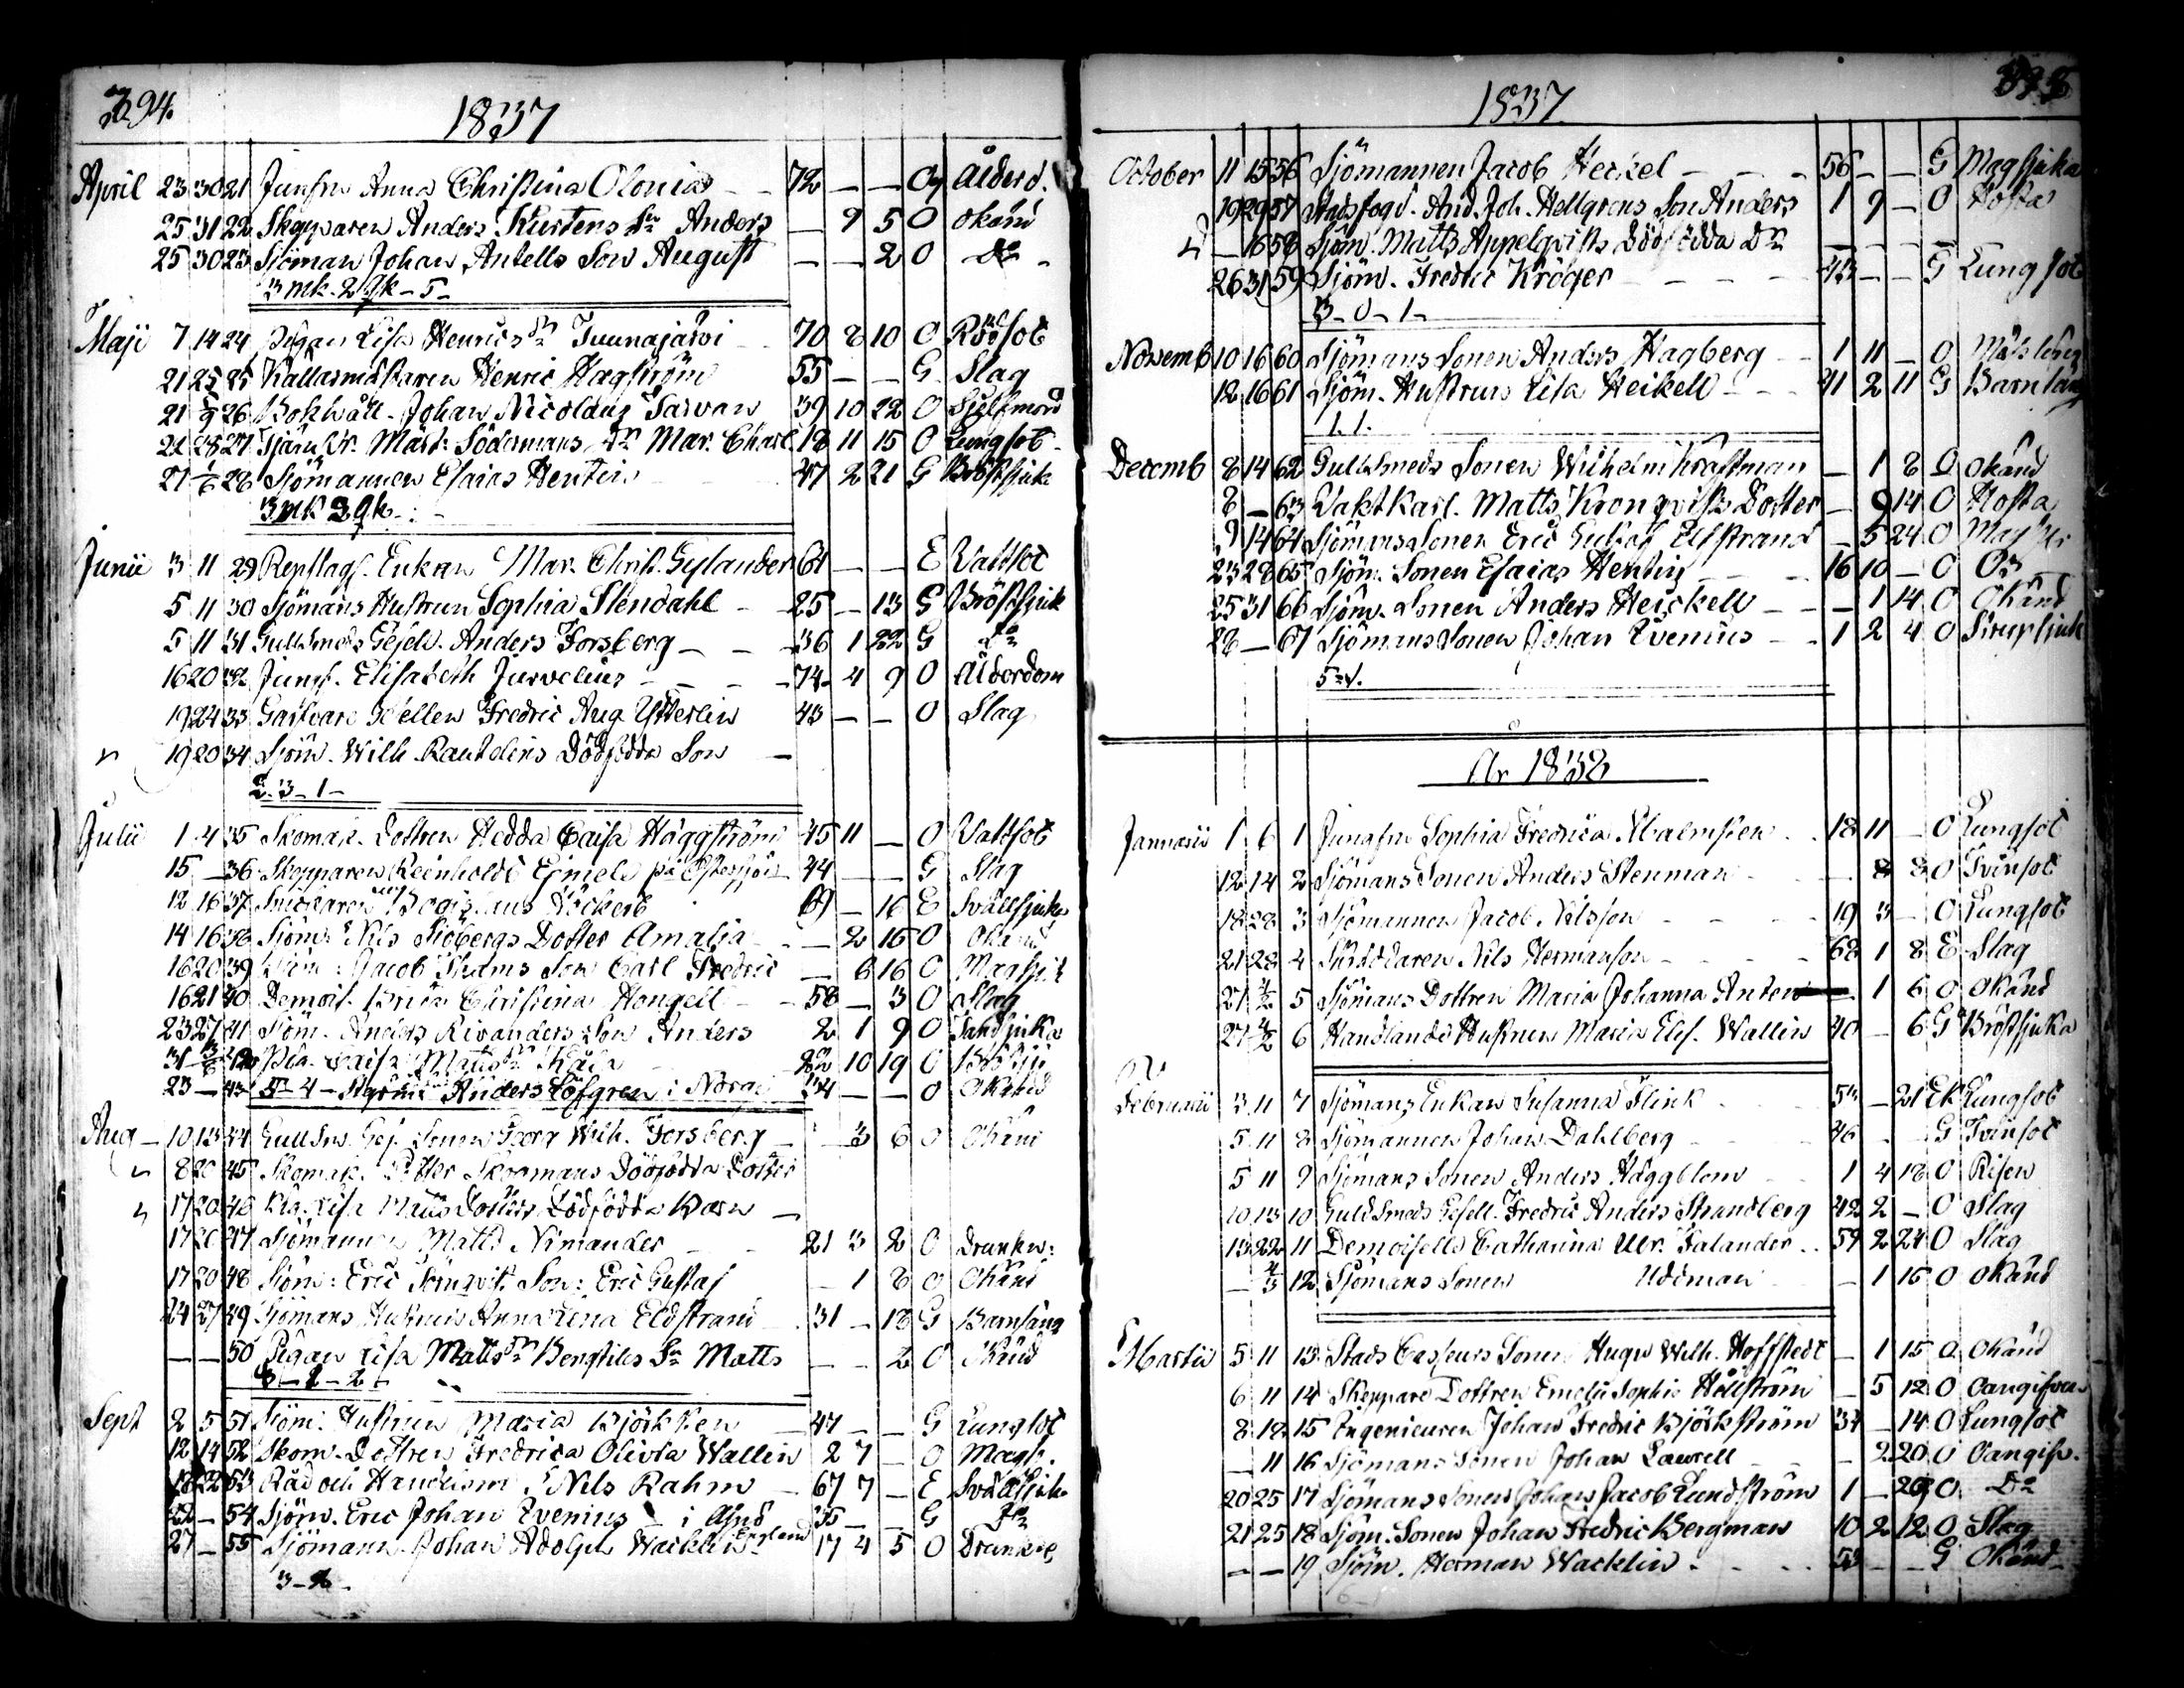 394.
1837
April 23 30 21 Jungfru Anna Christina Olonia 72 — — Og Ålderd.
25 31 22 Skepparen Anders Kurtens Sn Anders — 9 5 O okänd
25 30 23 Sjöman Johan Antells Son August — — 2 O Do
3 mk. 2 qk - 5 -
Maji 7 14 24 Pigan Lisa Henricsdr Juunajärvi 70 8 10 O Rödsot
21 25 25 Källarmästaren Henric Hagström 55 — — G Slag
21 26 Bokhåll. Johan Nicolaus 39 10 22 O Sjelfmord
22 28 27 Mar. Charl. 18 11 15 O Lungsot
27 1/6 28 Sjömannen Esaias Hentin 47 2 21 G Bröstsjuk
3 mk 2 qk
Junii 3 11 29 Repslag. Enkan Mar. Christ. Gylander 61 — — E Vattsot
5 11 30 Sjömans Hustrun Sophia Stendahl 25 — 13 G Bröstsjuk
5 11 31 Gullsmeds Gesell. Anders Forsberg 36 1 22 G Do
16 20 32 Jungf. Elisabeth Jurvelius 74 4 9 O Ålderdom
19 24 33 Garfvare Gesellen Fredric Aug. Ytterlin 43 — — O Slag
19 20 34 Sjöm. Wilh. Rautelins Dödfödda Son —
2. 3 - 1 -
Julii 1 4 35 Skomak. Dottren Hedda Caisa Häggström 45 11 — O Vattsot
15 — 36 Skepparen Reinholdt på Östersjön 44 — — G Slag
12 16 37 69 — 16 E Svullsjuka
14 16 38 Sjöm. Nils Sjöbergs Dotter Amalia — 2 15 O Okänd
16 20 39 Sjöm. Jacob Son Carl Fredric — 6 16 O Magsjuk
16 21 40 Demois. Brita Christina Hongell 58 — 3 O Slag
23 27 41 Sjöm. Anders Rivanders Son Anders 2 1 9 O
42 Caisa 22 10 19 O
23 — 43 Anders Löfgren i Norge 34 — — O Okänd
Aug 10 13 44 Gullsm. Ges. Sonen Georg Wilh. Forsberg — 3 6 O Okänd
8 20 45 Skomak. Petter Dödfödda Dotter
17 20 46 Lisa Matts Dotters Dödfödda Barn —
17 20 47 Sjömannen Matts Nimander 21 3 2 O Drunkn.
17 20 48 Sjöm. Eric Son Eric Gustaf — 1 8 O Okänd
24 27 49 Sjömans Hustrun Anna Lena Eldstrand 31 — 18 G Barnsäng
— — 50 Pigan Lisa Mattsdr Bengtiles Sn Matts — — 2 O Okänd
Sept 2 5 51 Sjöm. Hustrun Maria Björkken 47 — — G Lungsot
12 14 52 Skom. Dottren Fredrica Olivia Wallin 2 7 — O Mags.
18 22 53 Råd och Handlsm. Nils Rahm 67 7 — E Svullsjuk
22 — 54 Sjöm. Eric Johan Evenius 35 — — G Do
27 — 55 Sjömann. Johan Adolph Wacklin England 17 4 5 O Drunkne
1837
October 11 15 56 Sjömannen Jacob Heikel 56 — — G Magsjuka
19 29 57 Stadsfogd. And. Joh. Hellgrens Son Anders 1 9 — O Hosta
— 16 58 Sjöm. Matts Appelqvists Dödfödda Dr — — — —
26 31 59 Sjöm. Fredric Kröger 43 — — G Lungsot
3 - 0 - 1 -
Novemb 10 16 60 Sjömans Sonen Anders Hagberg 1 11 — O
12 16 61 Sjöm. Hustrun Lisa Heikell 41 2 11 G Barnsäng
1. 1.
Decemb 8 14 62 Gullsmeds Sonen Wilhelm Kraftman — 1 8 O okänd
8 — 63 Vaktkarl. Matts Kronqvists Dotter — 9 14 O Hosta
9 14 64 Sjömans Sonen Eric Gustaf Elfstrand — 5 24 O
23 28 65 Sjöm. Sonen Esaias Hentin 16 10 — O Do
25 31 66 Sjöm. Sonen Anders Heickell — 1 14 O Okänd
28 — 67 Sjömans Sonen Johan Evenius 1 2 4 O Strupsjuk
År 1838
Januarii 1 6 1 Jungfru Sophia Fredrica Malmsten 18 11 — O Lungsot
12 14 2 Sjömans Sonen Anders Stenman — 8 8 O Tvinsot
18 28 3 Sjömannen Jacob Nilsson 19 3 — O Lungsot
21 28 4 Skräddaren Nils Hermanson 68 1 8 E Slag
27 4/2 5 Sjömans Dottren Maria Johanna Anten — 1 6 O Okänd
27 4/2 6 Handlands Hustrun Maria Elis. Wallin 40 — 6 G Bröstsjuka
Februarii 3 11 7 Sjömans Enkan Susanna Flink 53 — 21 Ek Lungsot
5 11 8 Sjömannen Johan Dahlberg 46 — — G Tvinsot
5 11 9 Sjömans Sonen Anders Häggblom 1 4 18 O Risen
10 13 10 Guldsmeds Gesell. Fredric Anders Strandberg 42 2 — O Slag
13 22 11 Demoiselle Catharina Ulr. Falander 59 2 24 O Slag
— 4/3 12 Sjömans Sonen Uddman — 1 15 O okänd
Martii 5 11 13 Stads Casseurs Sonen Hugo Wilh. Hoffstedt — 1 15 O Okänd
6 11 14 Skeppare Dottren Emelie Sophie Hällström — 5 12 O Oangifven
8 18 15 Ingenieuren Johan Fredric Björkström 34 — 14 O Lungsot
— 11 16 Sjömans Sonen Johan Laurell — 2 20 O Oangifv.
20 25 17 Sjömans Sonen Johan Jacob Lundström 1 — 29 O Do
21 25 18 Sjöm. Sonen Johan Fredric Bergman 10 2 12 O Slag
— — 19 Sjöm. Herman Wacklin 53 — — G Okänd